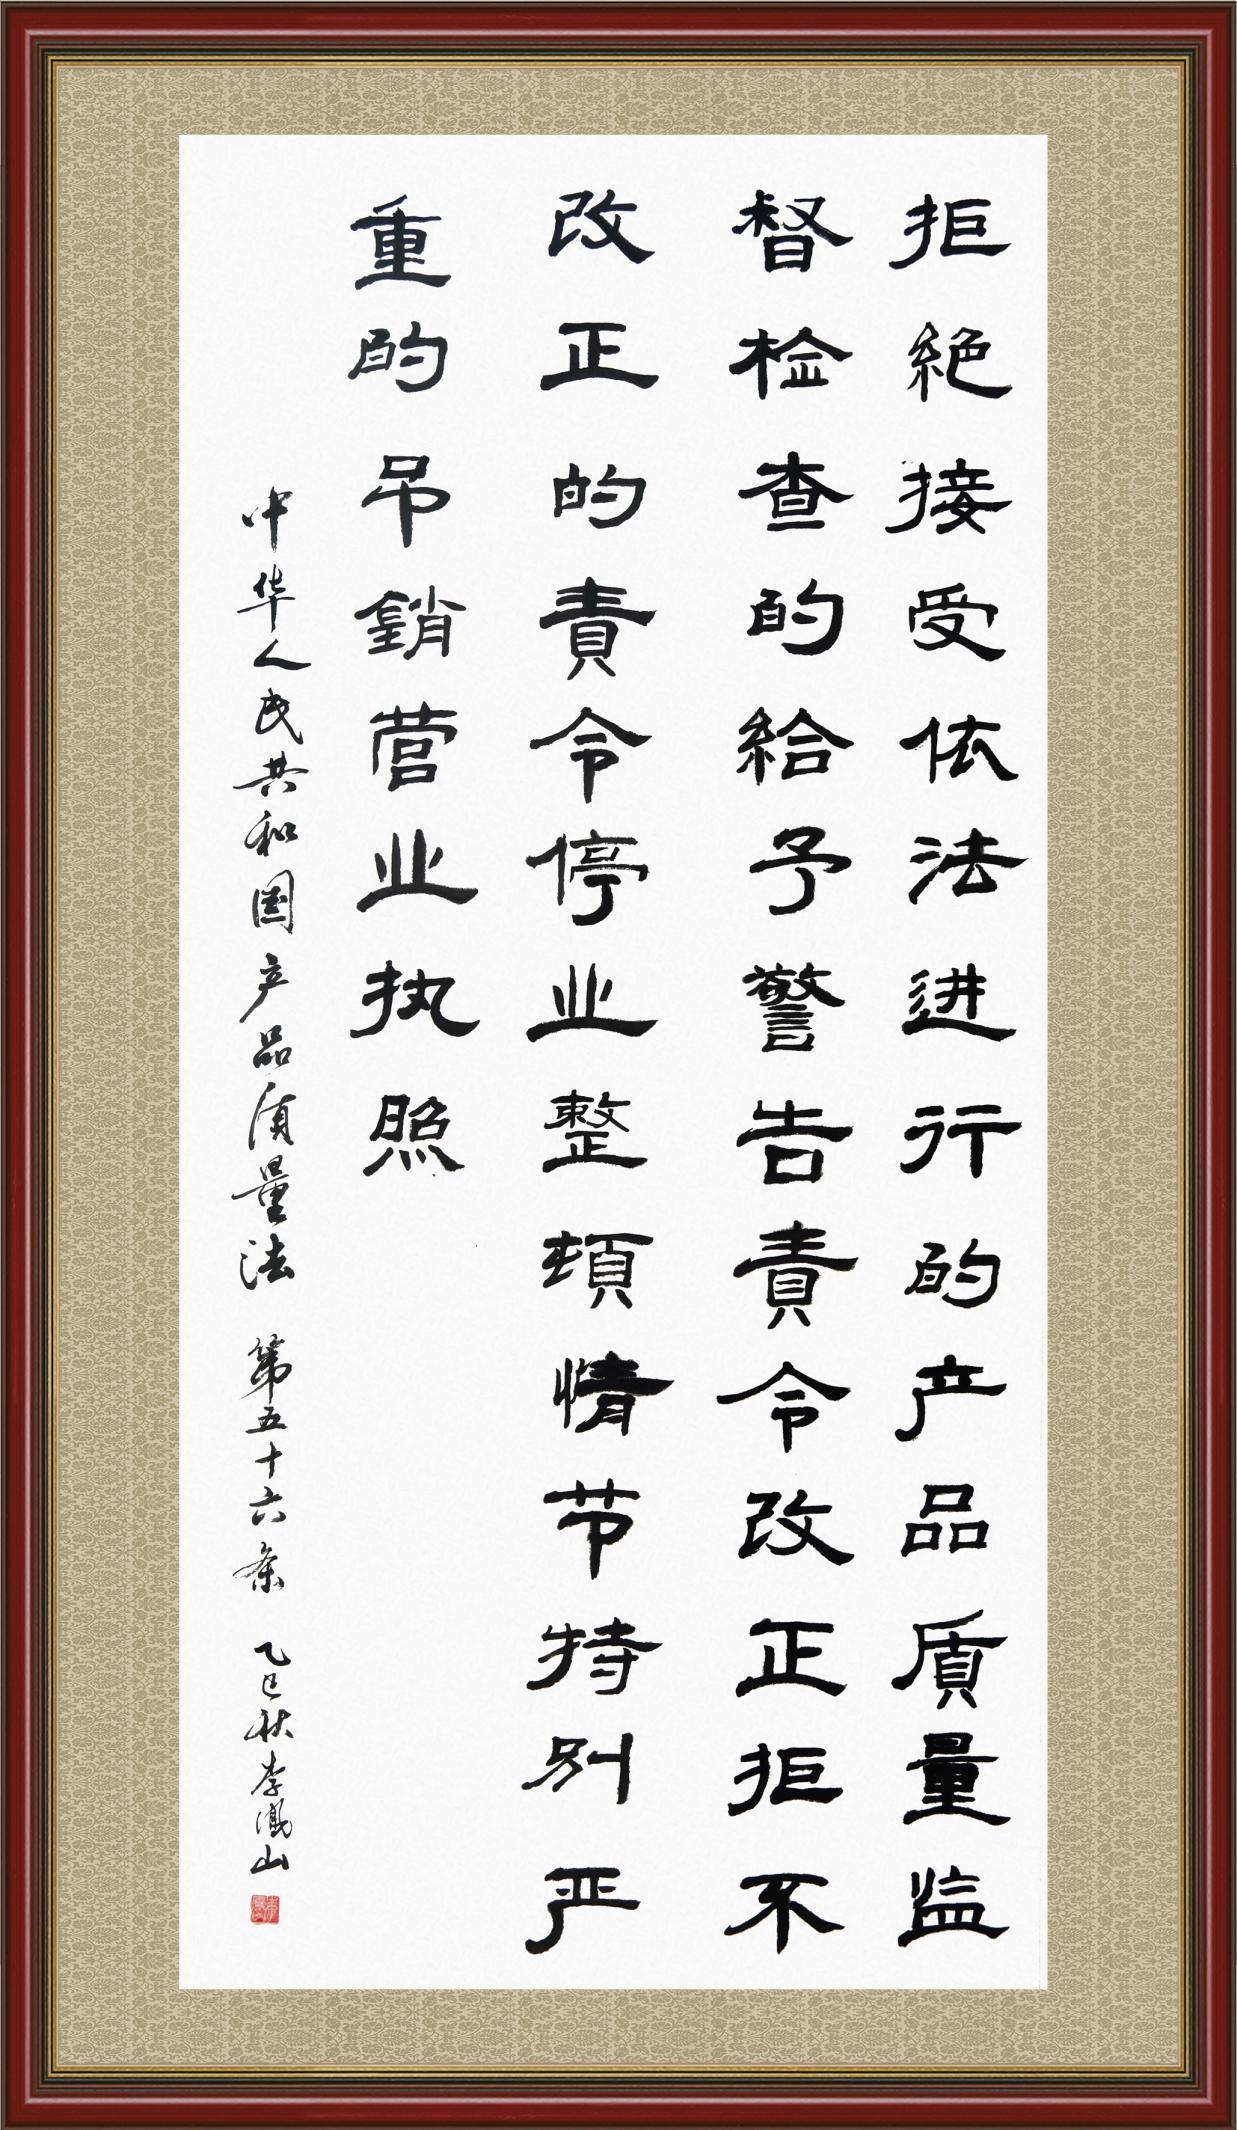 拒絶接受依法进行的产品质量监
督检查的給予警告責令改正拒不
改正的責令停业整頓情节特别严
重的吊銷营业执照
中华人民共和国产品质量法 第五十六条 乙巳秋李鳯山